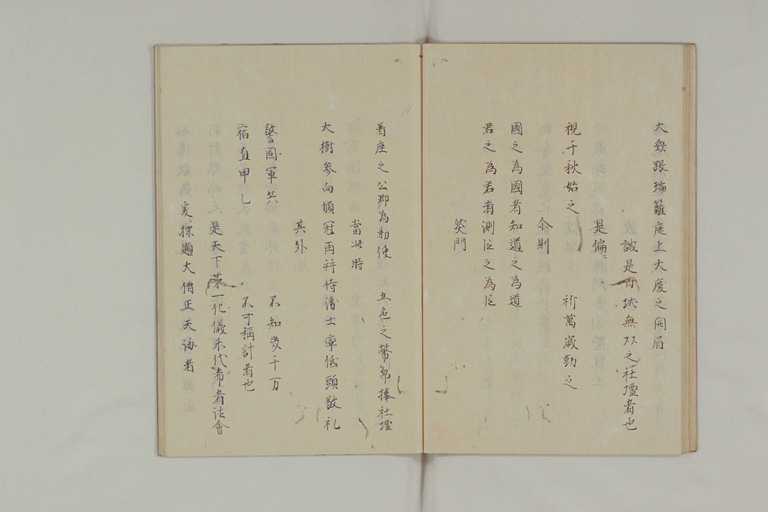 大衆踞瑞籬庭上大慶之開眉
誠是両域無双之社壇者也
是偏
視千秋始之 祈萬歳勤之
余則
國之為國者知道之為道
君之為君者測臣之為臣
英門
着座之公卿為勅使 五色之幣帛捧社壇
當此時
大樹参向傾冠再拝侍諸士率低頭敬礼
其外
警固軍兵 不知幾千万
宿直甲乙 不可稱計者也
是天下第一化儀末代希有法會
爰探題大僧正天海者